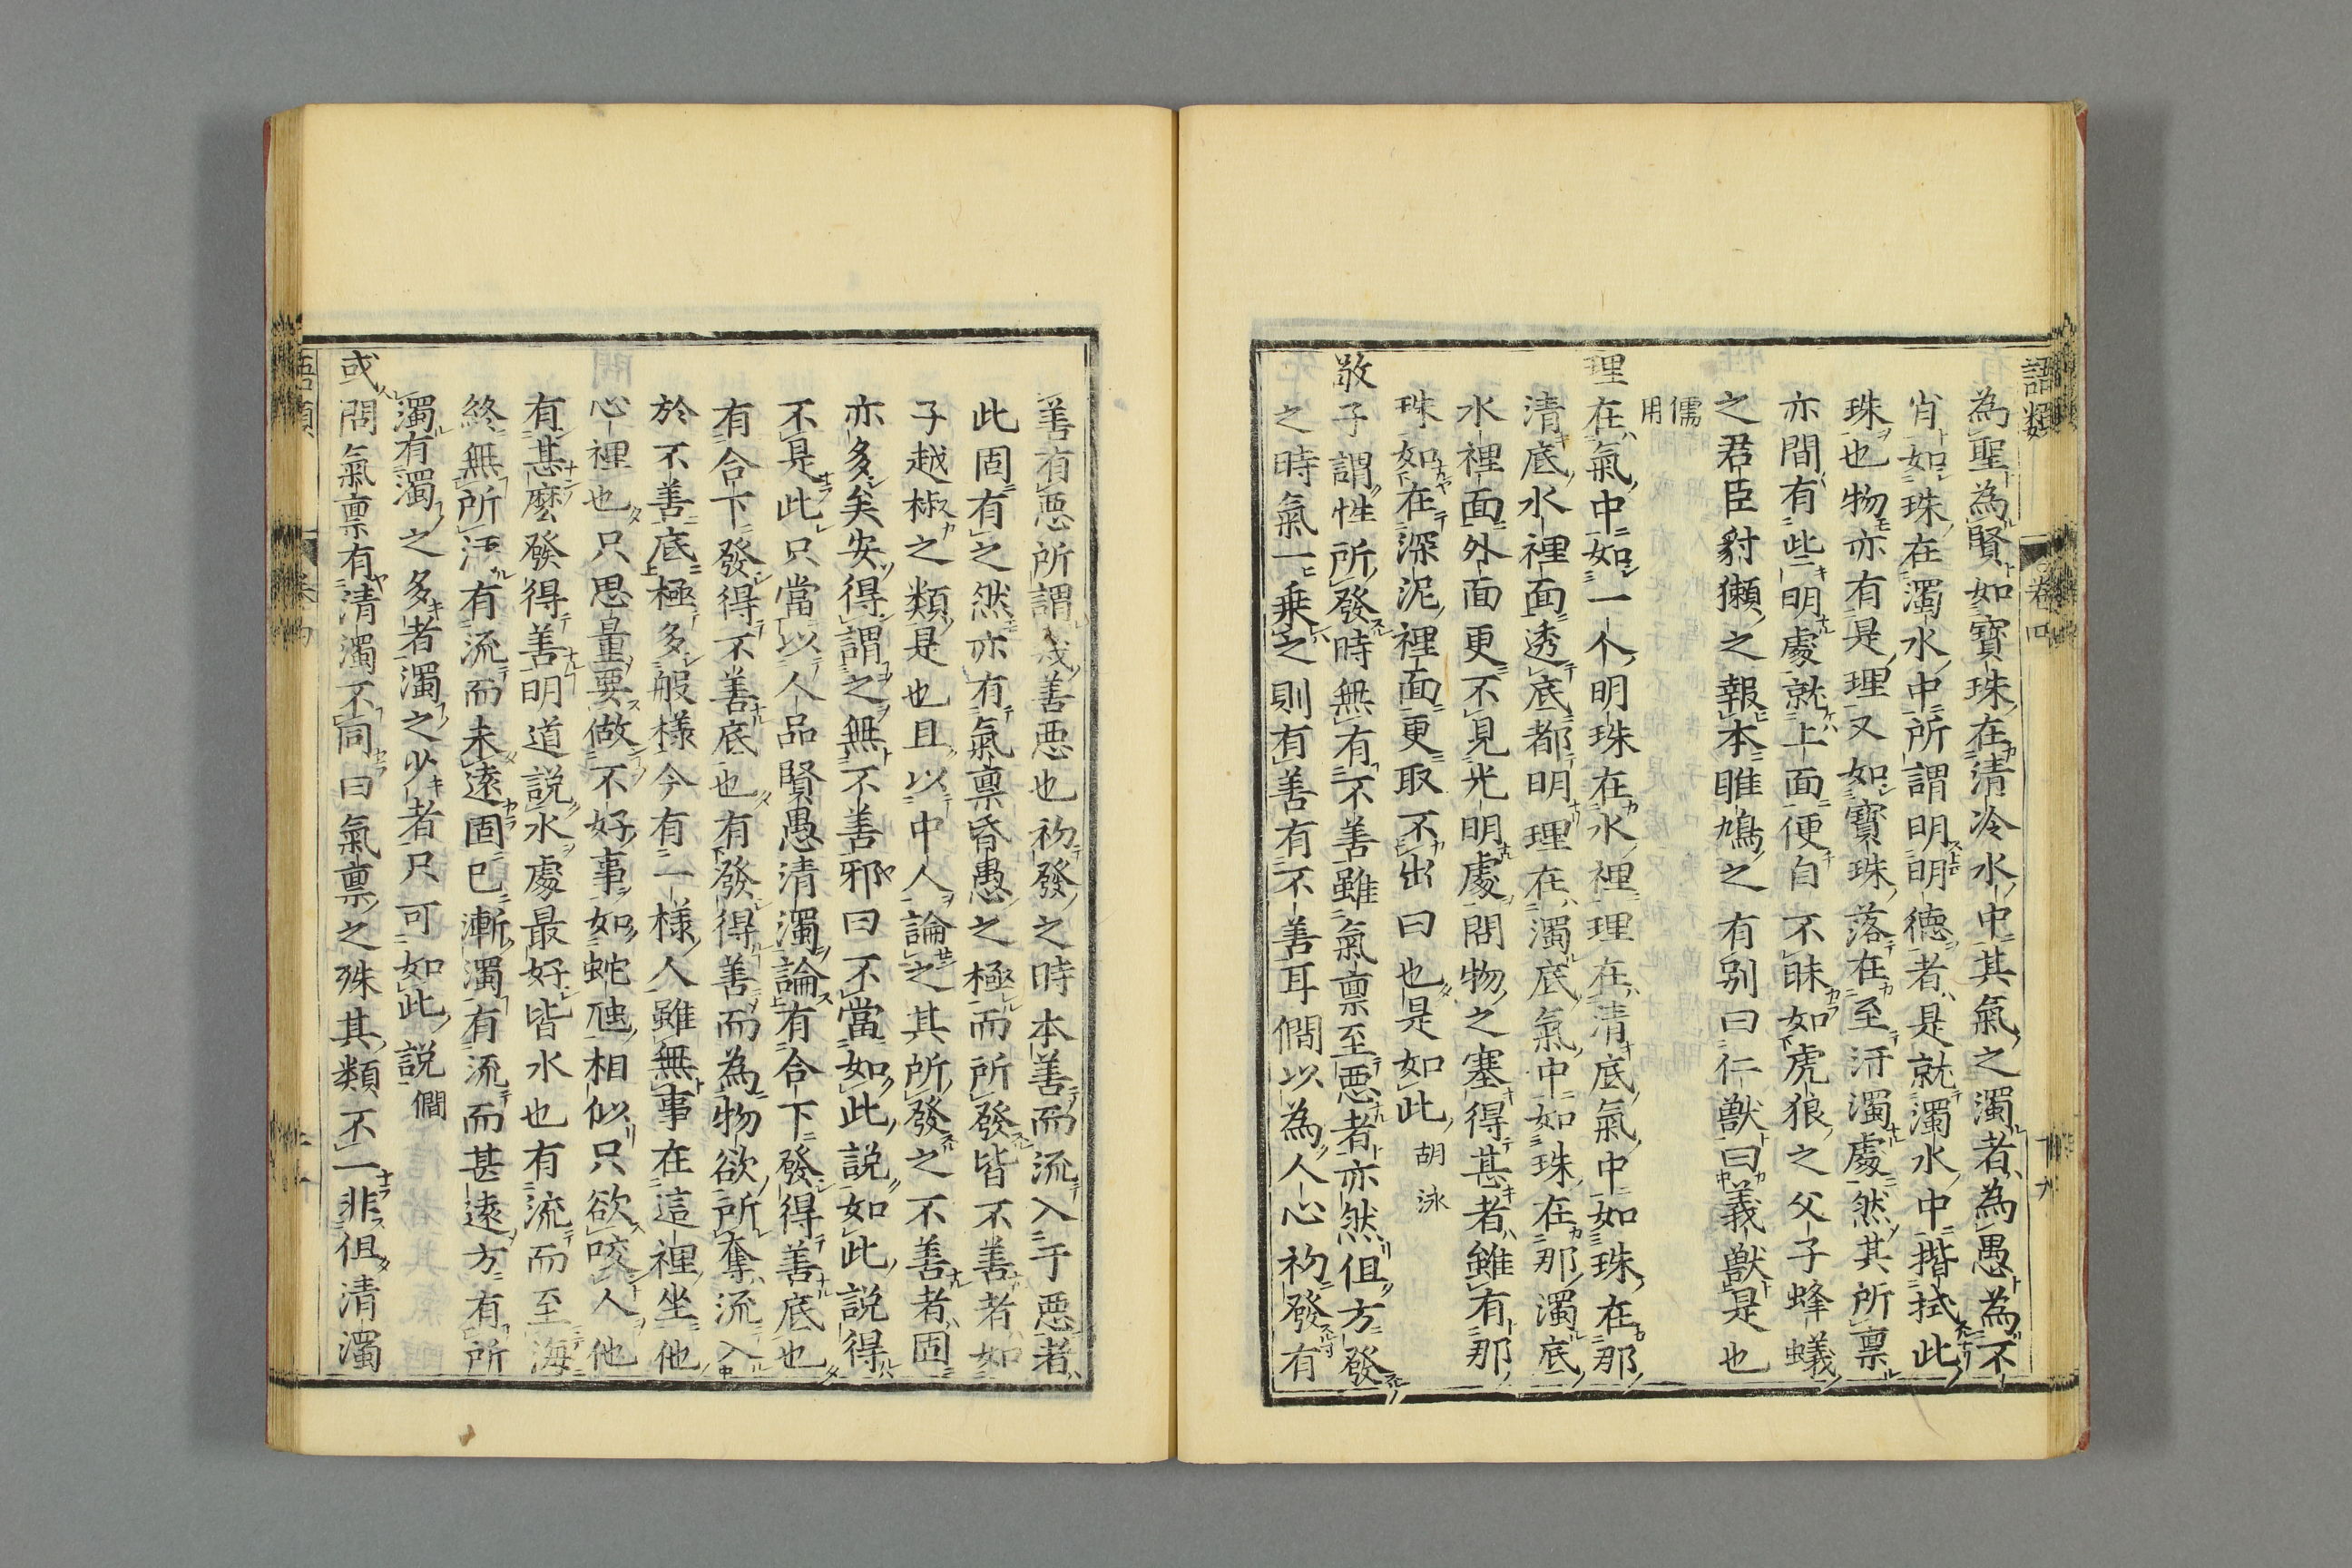 語類
卷四
十九
為聖為賢如寶珠在清冷水中其氣之濁者為愚為不
肖如珠在濁水中所謂明明德者是就濁水中揩拭此
珠也物亦有是理又如寶珠落在至汙濁處然其所稟
亦間有些明處就上面便自不昧如虎狼之父子蜂蟻
之君臣豺獺之報本雎鳩之有別曰仁獸曰義獸是也
儒
用
理在氣中如一个明珠在水裡理在清底氣中如珠在那
清底水裡面透底都明理在濁底氣中如珠在那濁底
水裡面外面更不見光明處問物之塞得甚者雖有那
珠如在深泥裡面更取不出曰也是如此胡泳
敬子謂性所發時無有不善雖氣稟至悪者亦然但方發
之時氣一乗之則有善有不善耳僩以為人心初發有
善有悪所謂幾善悪也初發之時本善而流入于悪者
此固有之然亦有氣稟昏愚之極而所發皆不善者如
子越椒之類是也且以中人論之其所發之不善者固
亦多矣安得謂之無不善邪曰不當如此說如此說得
不是此只當以人品賢愚清濁論有合下發得善底也
有合下發得不善底也有發得善而為物欲所奪流入
於不善底極多般様今有一様人雖無事在這裡坐他
心裡也只思量要做不好事如蛇虺相似只欲咬人他
有甚麼發得善明道說水處最好皆水也有流而至海
終無所汙有流而未遠固已漸濁有流而甚遠方有所
濁有濁之多者濁之少者只可如此說僩
或問氣稟有清濁不同曰氣稟之殊其類不一非但清濁
語類
卷四